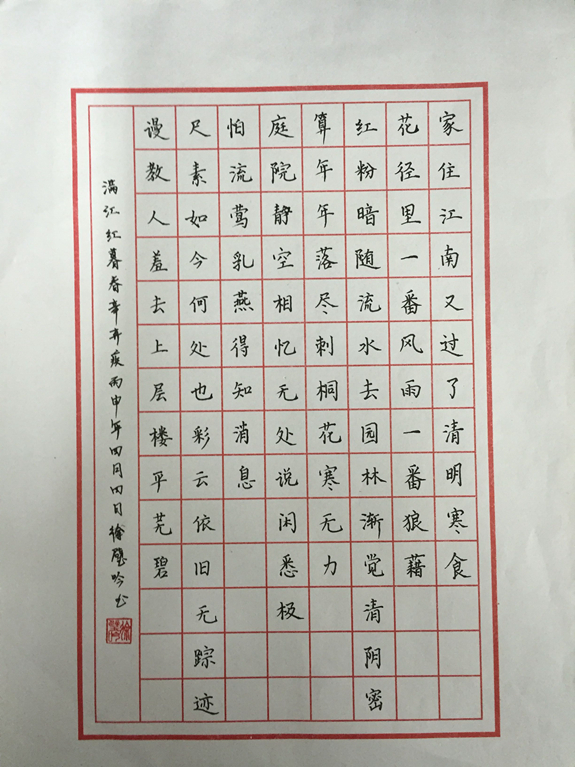 家住江南又过了清明寒食
花径里一番风雨一番狼藉
红粉暗随流水去园林渐觉清阴密
算年年落尽刺桐花寒无力
庭院静空相忆无处说闲悉极
怕流莺乳燕得知消息
尺素如今何处也彩云依旧无踪迹
谩教人羞去上层楼平芜碧
满江红暮春辛弃疾丙申年四月四日徐吟书